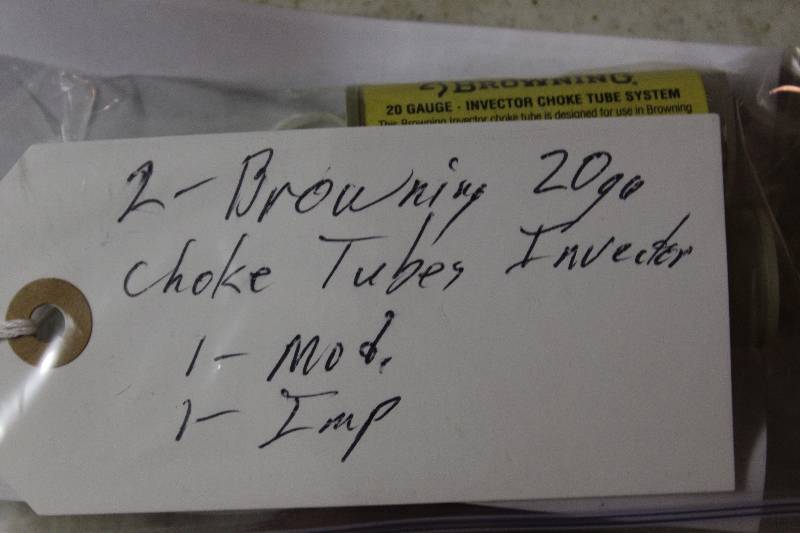 BROWNING.
20 GAUGE - INVECTOR CHOKE TUBE SYSTEM
This Browning Invector choke tube is designed for use in Browning
2- Browning 20ga
Choke Tubes Invector
1- Mod.
1- Imp